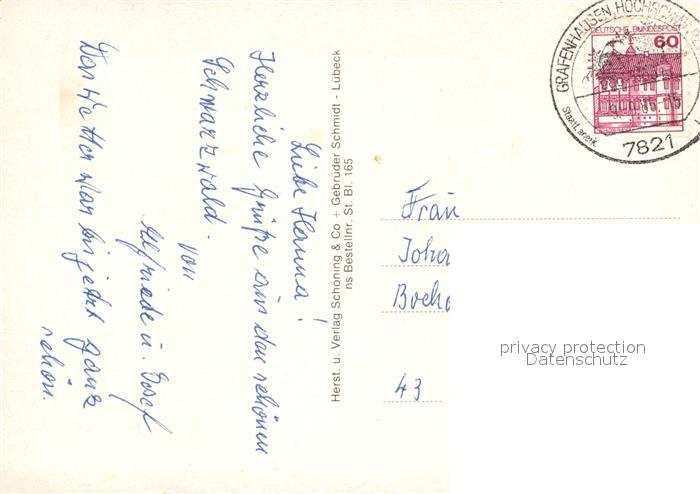 Liebe Hanna!
Herzliche Grüße aus dem schönen
Schwarzwald.
von
Elfriede u. Josef
Das Wetter war bis jetzt ganz
schön.
Herst. u. Verlag Schöning & Co + Gebrüder Schmidt - Lübeck
ns Bestellnr. St. Bl. 165
GRAFENHAUSEN HOCHSCHWARZ
Staatl. anerk.
7821
DEUTSCHE BUNDESPOST
60
Frau
Joha
Bocho
43
privacy protection
Datenschutz